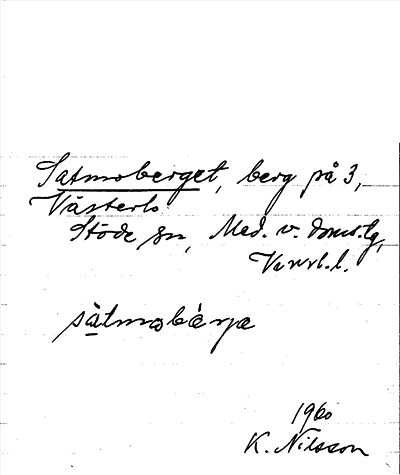 Satmoberget, berg på 3,
Västerlo
Stöde sn, Med. v. doms.lg,
Vnrl. l.
sàtmobærja
1960
K. Nilsson